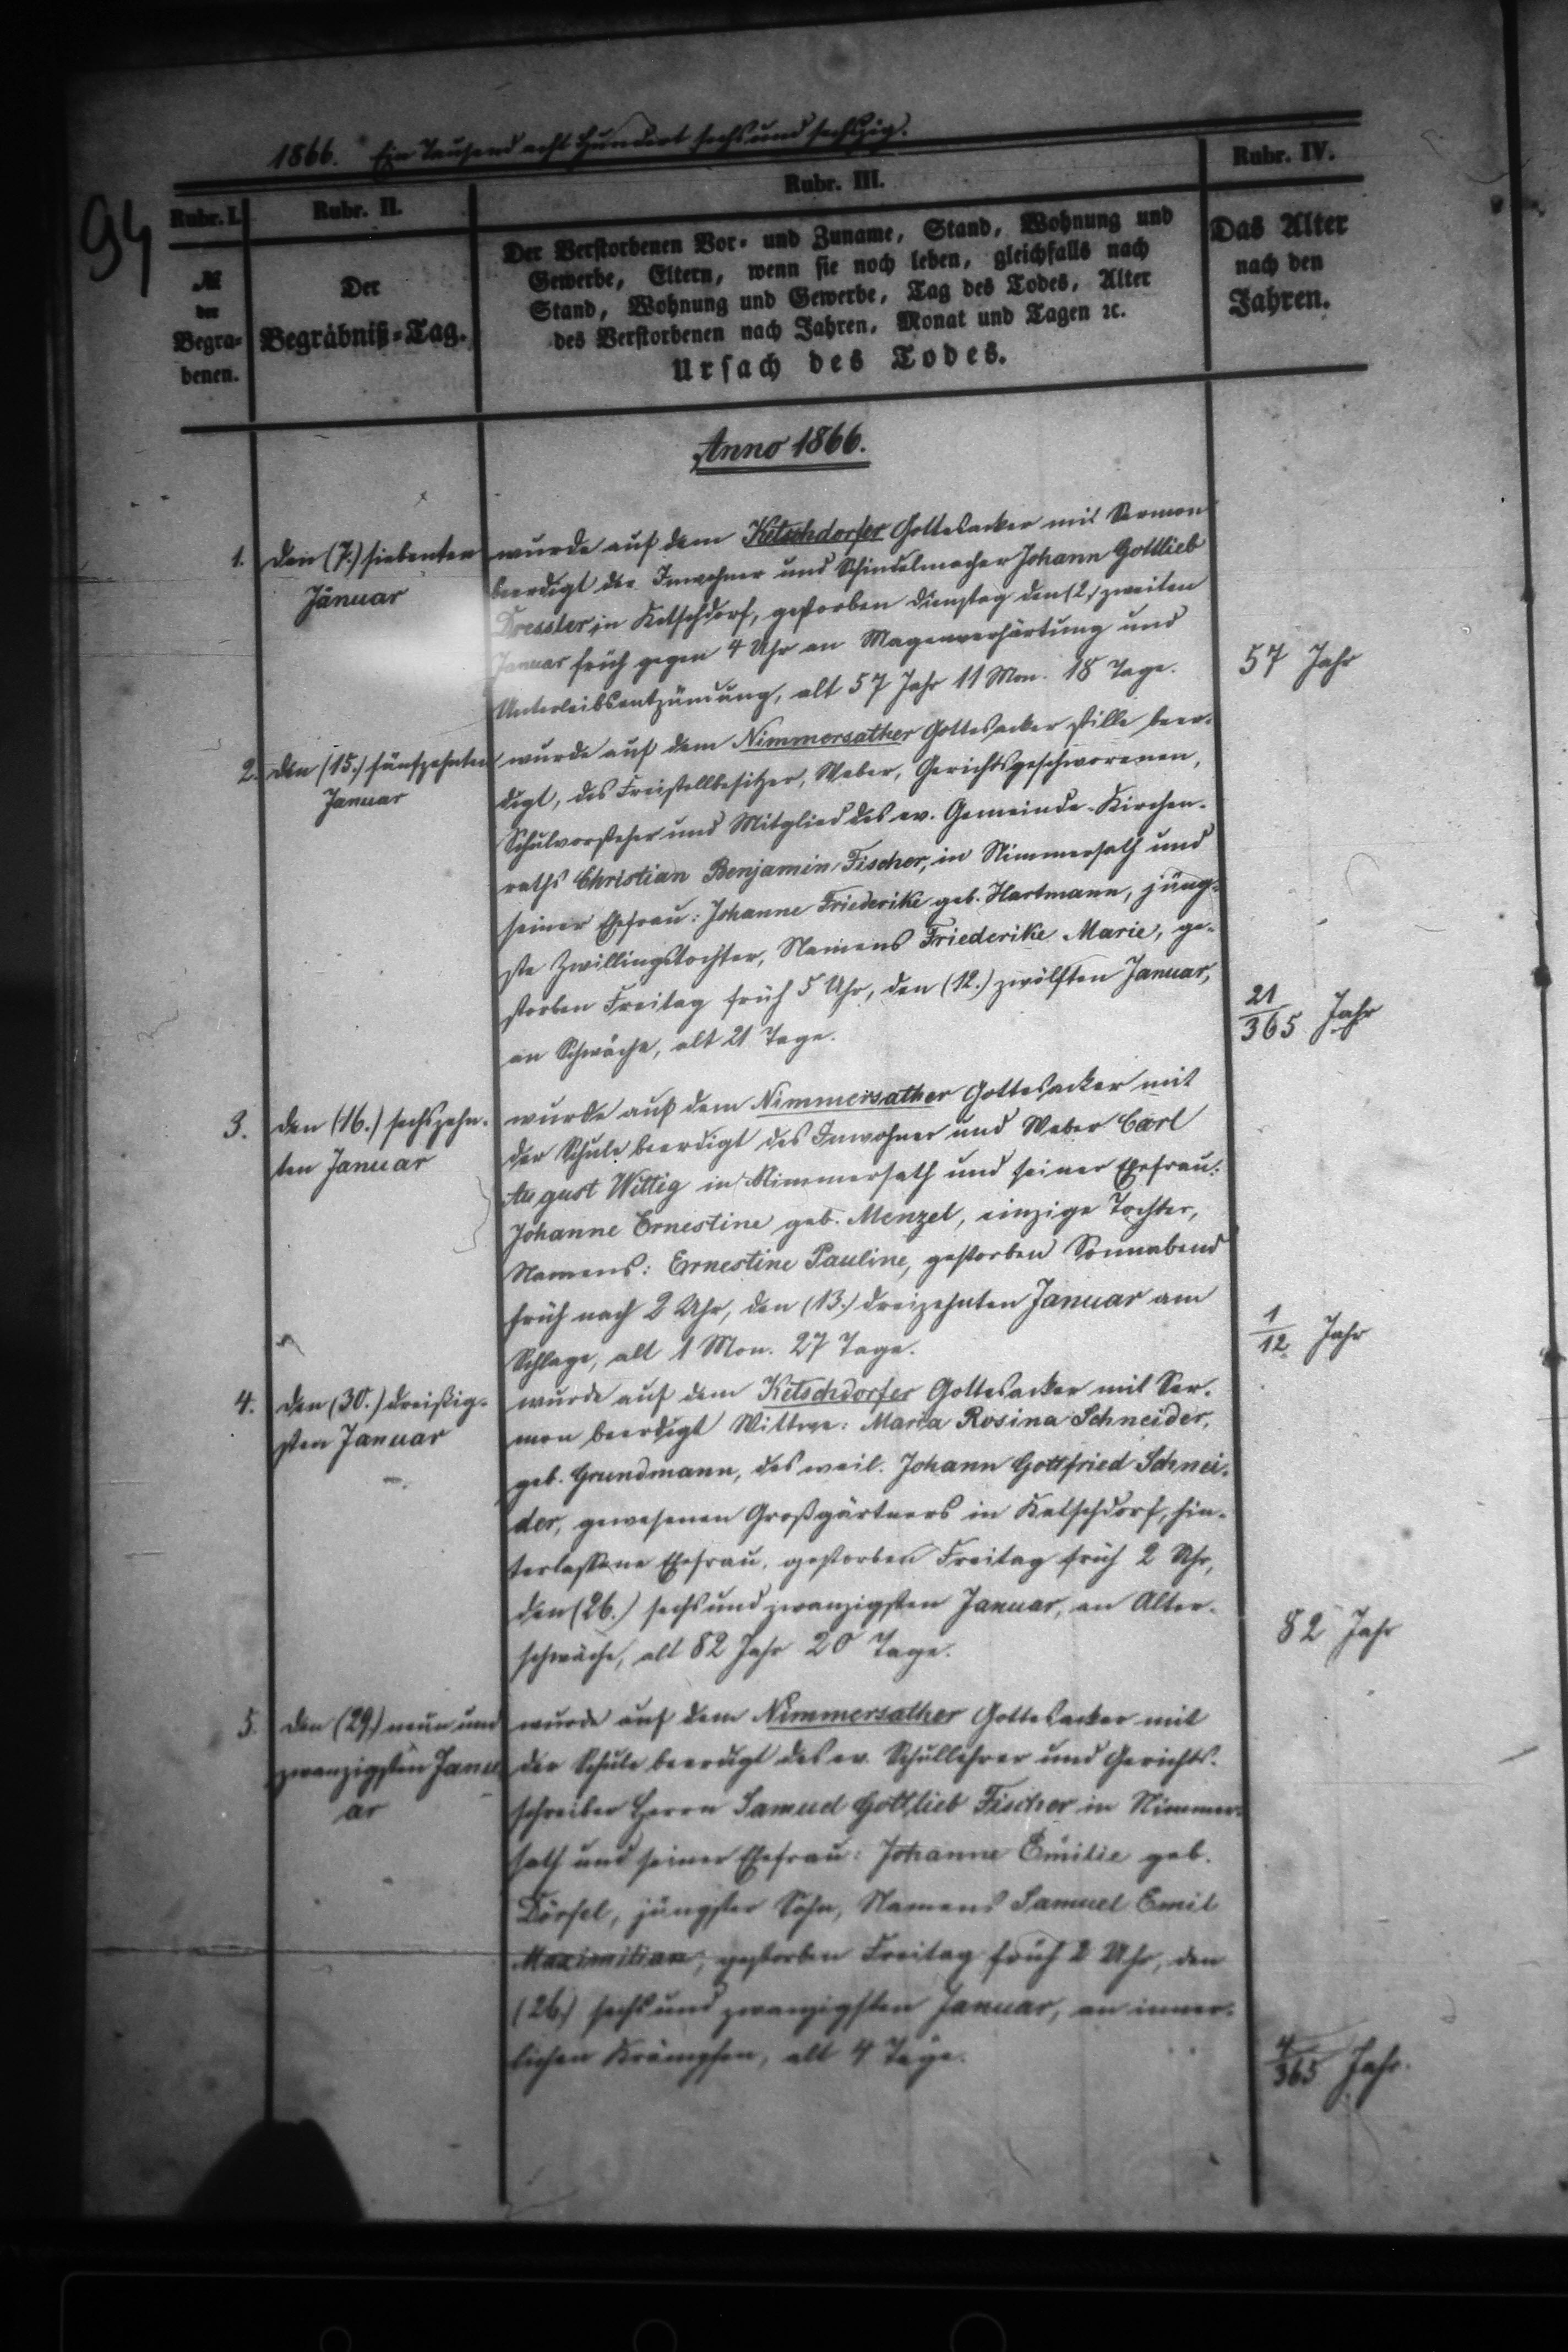 1866. Ein Tausend acht Hundert sechs und sechszig.
94
Rubr. I.
№
der
Begra-
benen.
Rubr. II.
Der
Begräbniß-Tag.
Rubr. III.
Der Verstorbenen Vor- und Zuname, Stand, Wohnung und
Gewerbe, Eltern, wenn sie noch leben, gleichfalls nach
Stand, Wohnung und Gewerbe, Tag des Todes, Alter
des Verstorbenen nach Jahren, Monat und Tagen ꝛc.
Ursach des Todes.
Rubr. IV.
Das Alter
nach den
Jahren.
Anno 1866.
1.
den (7.) siebenten
Januar
wurde auf dem Ketschdorfer Gottesacker mit Sermon
beerdigt der Inwohner und Schindelmacher Johann Gottlieb
Dressler in Ketschdorf, gestorben Dienstag den (2.) zweiten
Januar früh gegen 4 Uhr an Magenverhärtung und
Unterleibsentzündung, alt 57 Jahr 11 Mon. 18 Tage.
57 Jahr
2.
den (15.) fünfzehnten
Januar
wurde auf dem Nimmersather Gottesacker stille beer-
digt, des Freistellbesitzer, Weber, Gerichtsgeschworenen,
Schulvorsteher und Mitglied des ev. Gemeinde-Kirchen-
raths Christian Benjamin Fischer, in Nimmersath und
seiner Ehefrau: Johanne Friederike geb. Hartmann, jüng-
ste Zwillingstochter, Namens Friederike Marie, ge-
storben Freitag früh 5 Uhr, den (12.) zwölften Januar,
an Schwäche, alt 21 Tage.
21/365 Jahr
3.
den (16.) sechszehn-
ten Januar
wurde auf dem Nimmersather Gottesacker mit
der Schule beerdigt des Inwohner und Weber Carl
August Wittig in Nimmersath und seiner Ehefrau:
Johanne Ernestine geb. Menzel, einzige Tochter,
Namens: Ernestine Pauline, gestorben Sonnabend
früh nach 2 Uhr, den (13.) dreizehnten Januar am
Schlage, alt 1 Mon. 27 Tage.
1/12 Jahr
4.
den (30.) dreißig-
sten Januar
wurde auf dem Ketschdorfer Gottesacker mit Ser-
mon beerdigt Wittwe: Maria Rosina Schneider,
geb. Grundmann, des weil. Johann Gottfried Schnei-
der, gewesenen Großgärtners in Ketschdorf, hin-
terlassene Ehefrau, gestorben Freitag früh 2 Uhr,
den (26.) sechs und zwanzigsten Januar, an Alter-
schwäche, alt 82 Jahr 20 Tage.
82 Jahr
5.
den (29.) neun und
zwanzigsten Janu-
ar
wurde auf dem Nimmersather Gottesacker mit
der Schule beerdigt des ev. Schullehrer und Gerichts-
schreiber Herrn Samuel Gottlieb Fischer in Nimmer-
sath und seiner Ehefrau: Johanne Emilie geb.
Dörfel, jüngster Sohn, Namens Samuel Emil
Maximilian, gestorben Freitag früh 2 Uhr, den
(26.) sechs und zwanzigsten Januar, an inner-
lichen Krämpfen, alt 4 Tage.
4/365 Jahr.